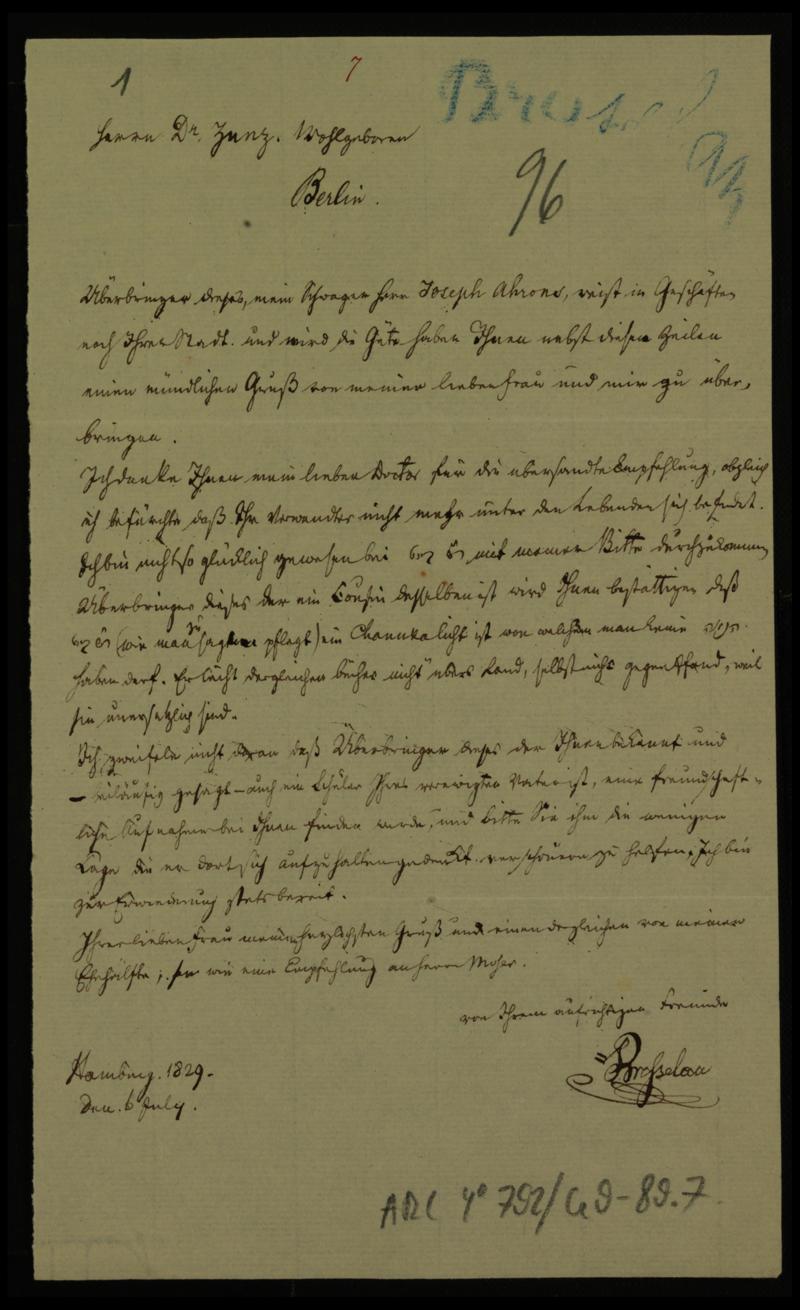 1
7
Bresel
96
Herrn Dr. Zunz. Wohlgeboren
Berlin.
Überbringer dieses, mein Schwager Herr Joseph Ahrons, reist in Geschäften
nach Ihrer Stadt. und wird die Güte haben Ihnen nebst diesen Zeilen
einen mündlichen Gruß von meiner lieben Frau und mir zu über-
bringen.
Ich danke Ihnen mein lieber Doctor für die übersandte Empfehlung, obgleich
ich befürchte daß Ihr Verwandter nicht mehr unter den Lebenden sich befindet.
Ich bin nicht so glücklich gewesen bei mit meiner Bitte durchzukommen
Überbringer dieses der ein Cousin desselben ist wird Ihnen bestättigen daß
(wie man zu sagen pflegt) ein Channukalicht ist von welchem man keine
haben darf. Er leiht dergleichen bücher nicht übers Land, selbst nicht gegen Pfand, weil
sie unersetzlich sind.
Ich zweifele nicht daran daß Überbringer dieses der Ihnen bekannt und
– beiläufig gesagt – auch ein Schüler Ihres verewigten Vaters ist, eine freundschaft-
liche Aufnahme bei Ihnen finden werde, und bitte Sie ihm die wenigen
Tage die er dort sich aufzuhalten gedenkt verschönern zu helfen. Ich bin
zur Erwiederung stets bereit.
Ihrer lieben Frau meinen herzlichsten Gruß und einen dergleichen von meiner
Ehehälfte; so wie eine Empfehlung an Herrn Moser.
von Ihrem aufrichtigen Freunde
Bresselau
Hamburg. 1829.
Den. 6 July.
ARC 4° 792/G9-89.7